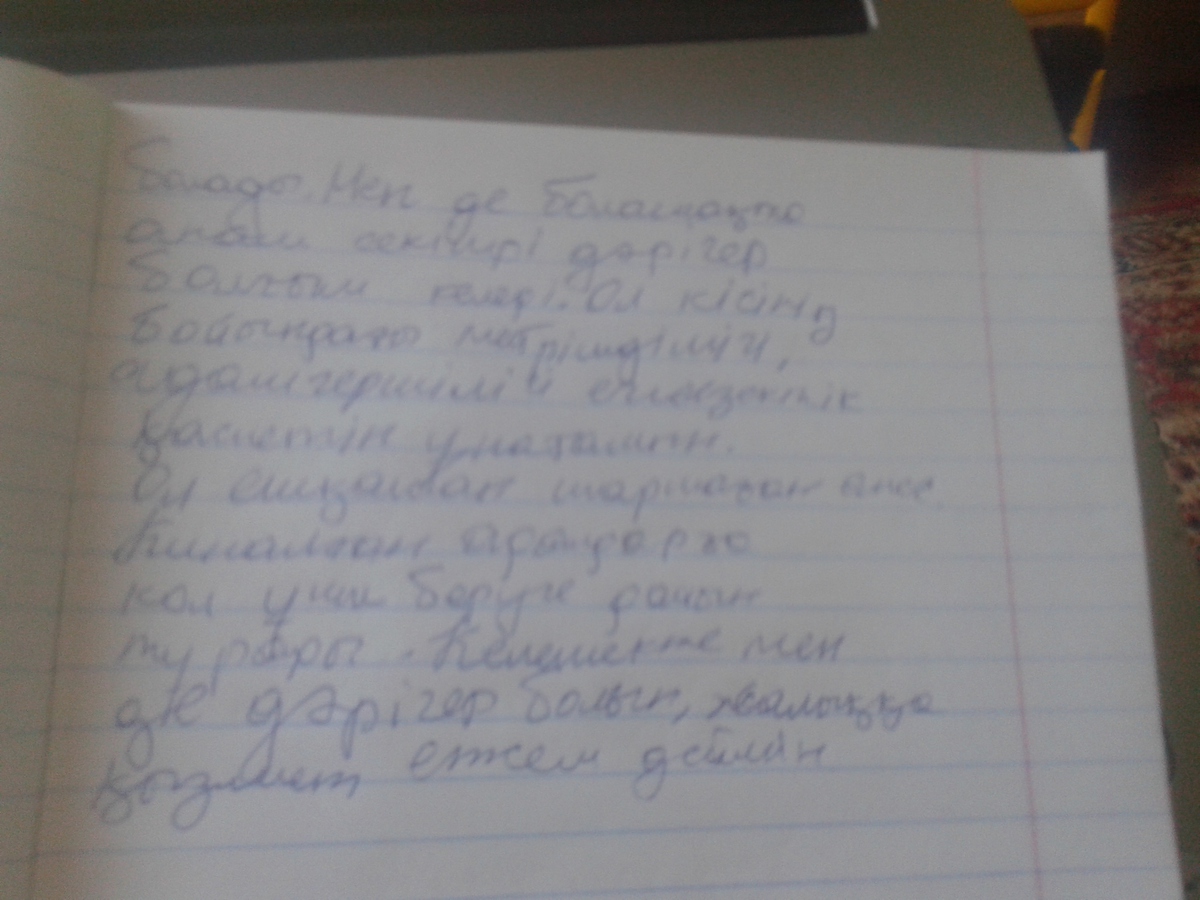 болады. Мен де болашақта
анам секілді дәрігер
болғым келеді. Ол кісінің
бойындағы мейірімділігі,
адамгершілігі
қасиетін ұнатамын.
Ол ешқашан шаршаған емес.
Қиналған адамдарға
қол ұшын беруге дайын
тұрады. Келешекте мен
де дәрігер болып, халыққа
қызмет етсем деймін